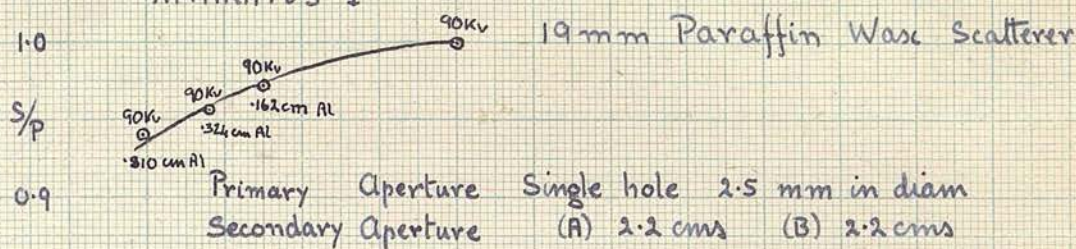 90Kv
1.0 19mm Paraffin Wax Scatterer
90Kv
90Kv .162cm Al
S/P 90Kv .324cm Al
.810 cm Al
0.9 Primary Aperture Single hole 2.5 mm in diam
Secondary Aperture (A) 2.2 cms (B) 2.2 cms